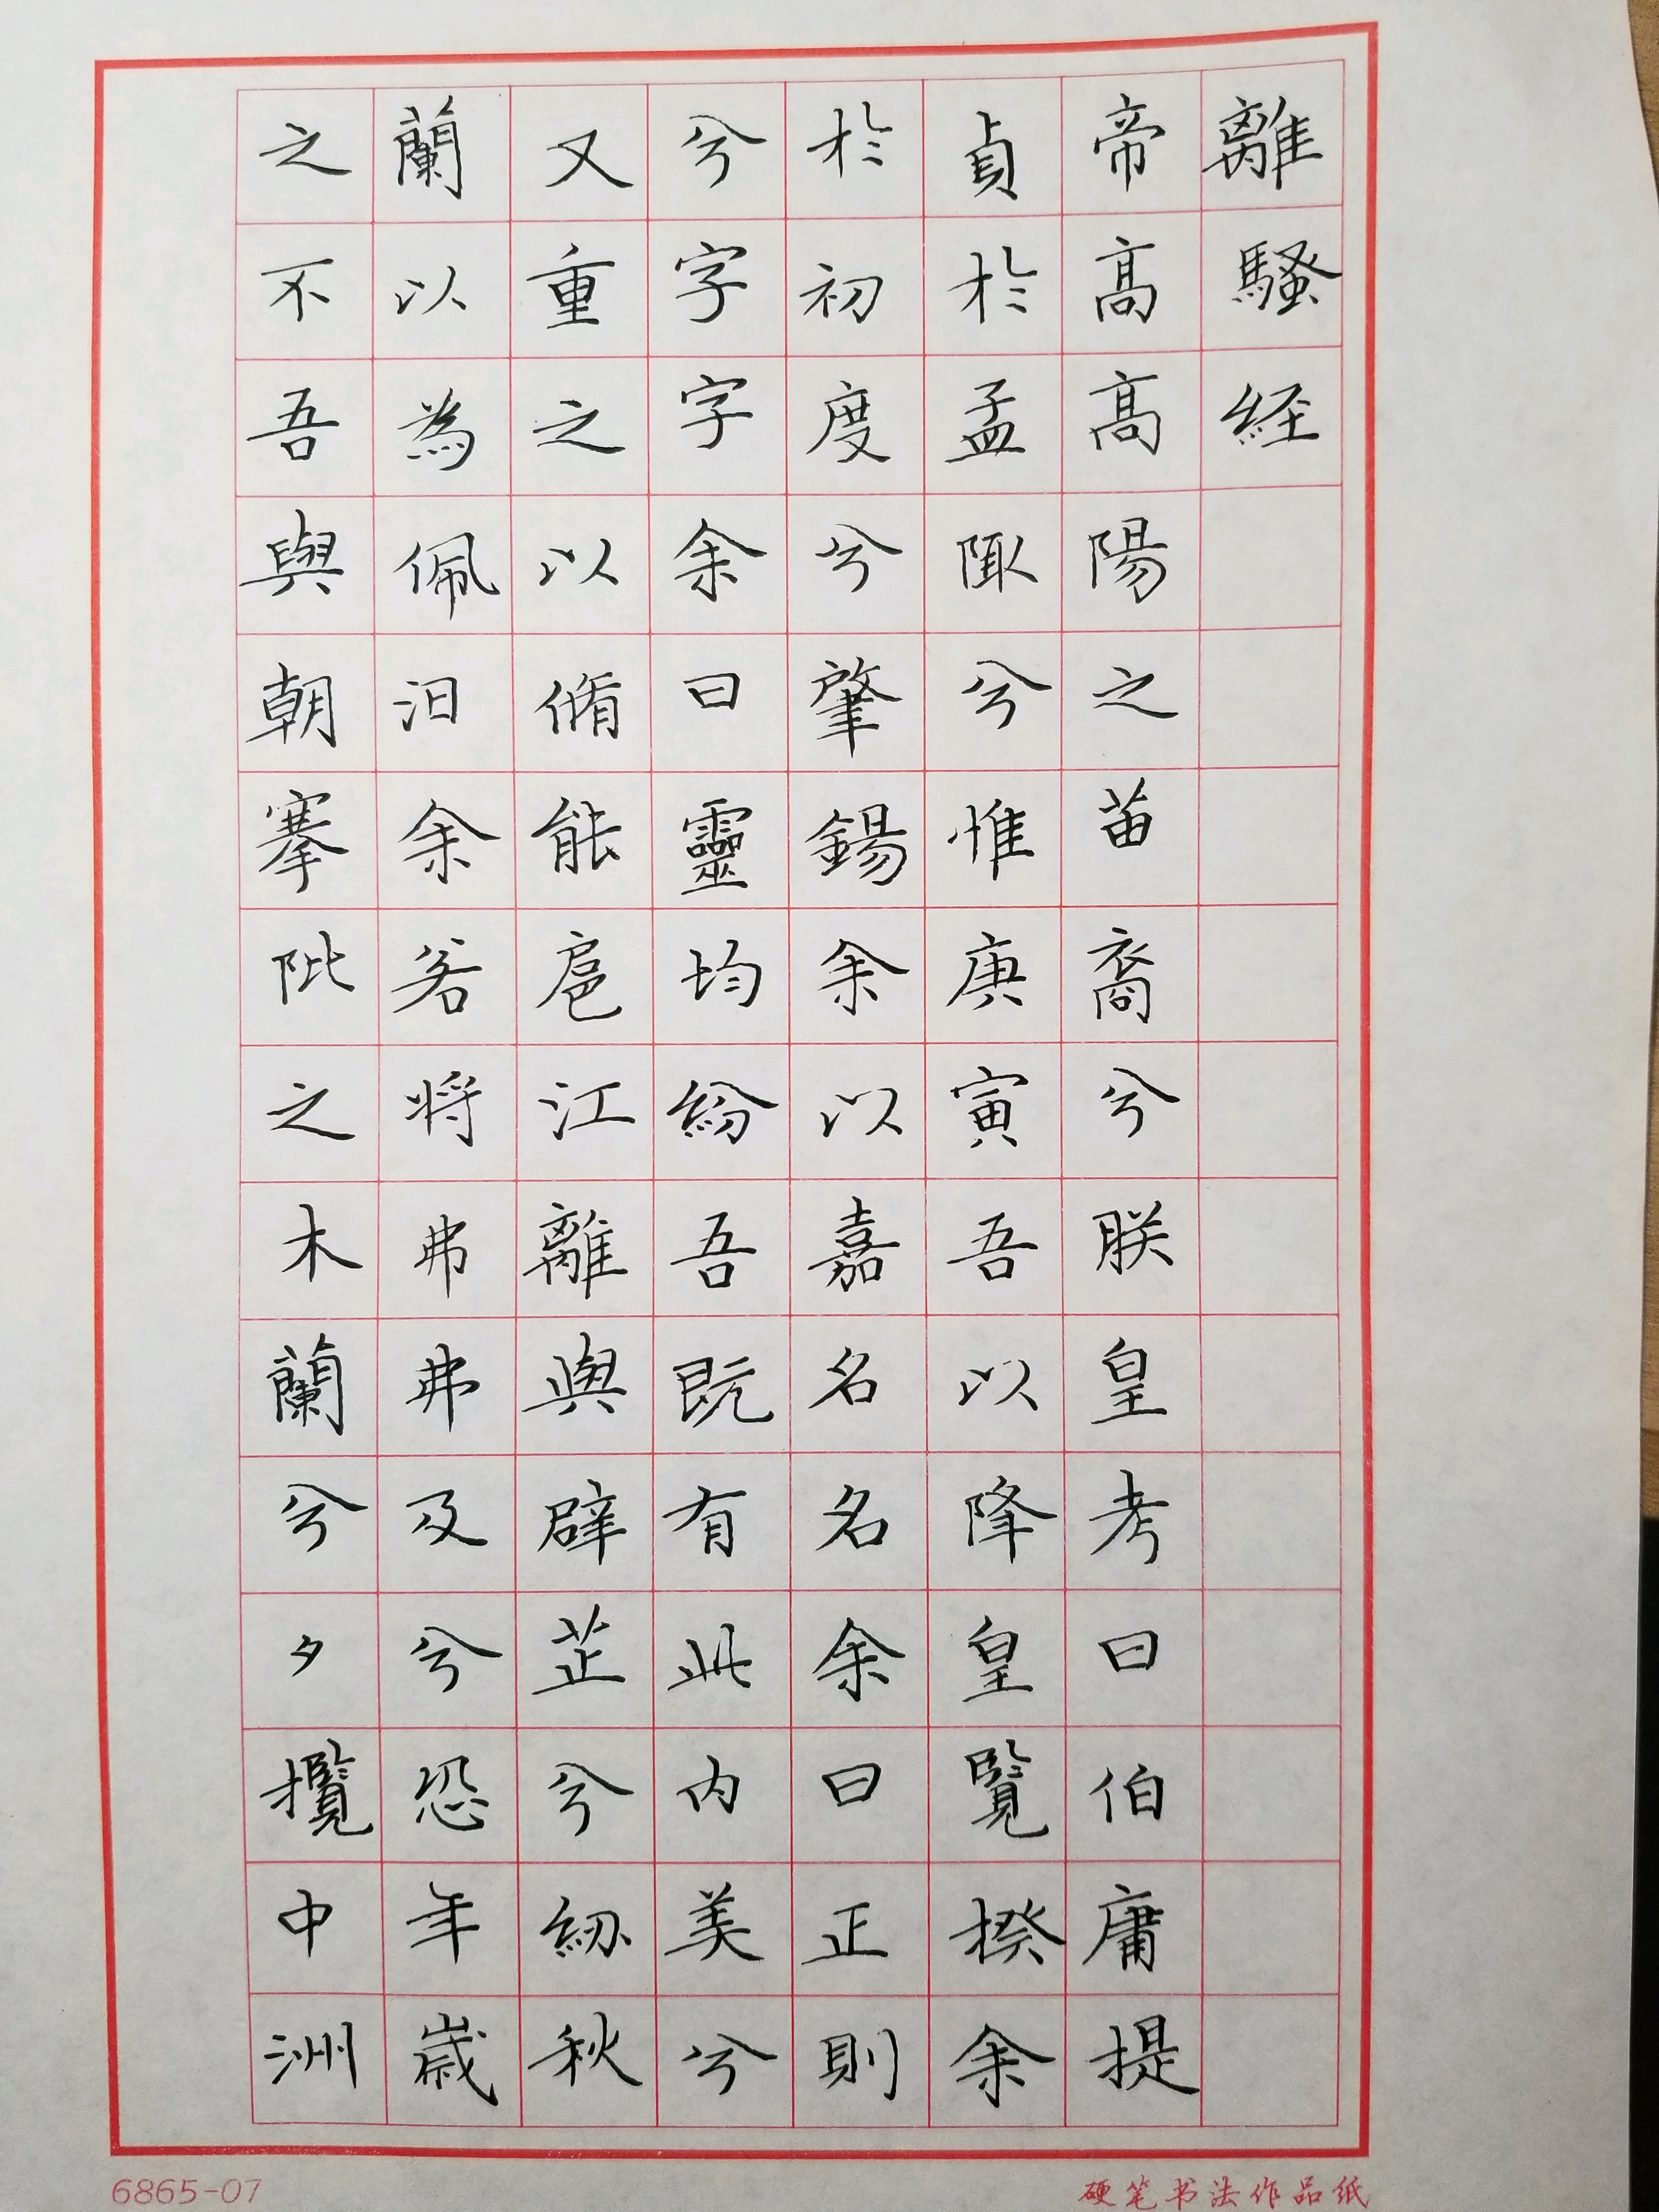 離騷経
帝高高陽之苗裔兮朕皇考曰伯庸提
貞於孟陬兮惟庚寅吾以降皇覽揆余
於初度兮肇錫余以嘉名名余曰正則
兮字字余曰靈均紛吾既有此内美兮
又重之以脩能扈江離與辟芷兮紉秋
蘭以為佩汩余若将弗弗及兮恐年歲
之不吾與朝搴阰之木蘭兮夕攬中洲
6865-07
硬笔书法作品纸